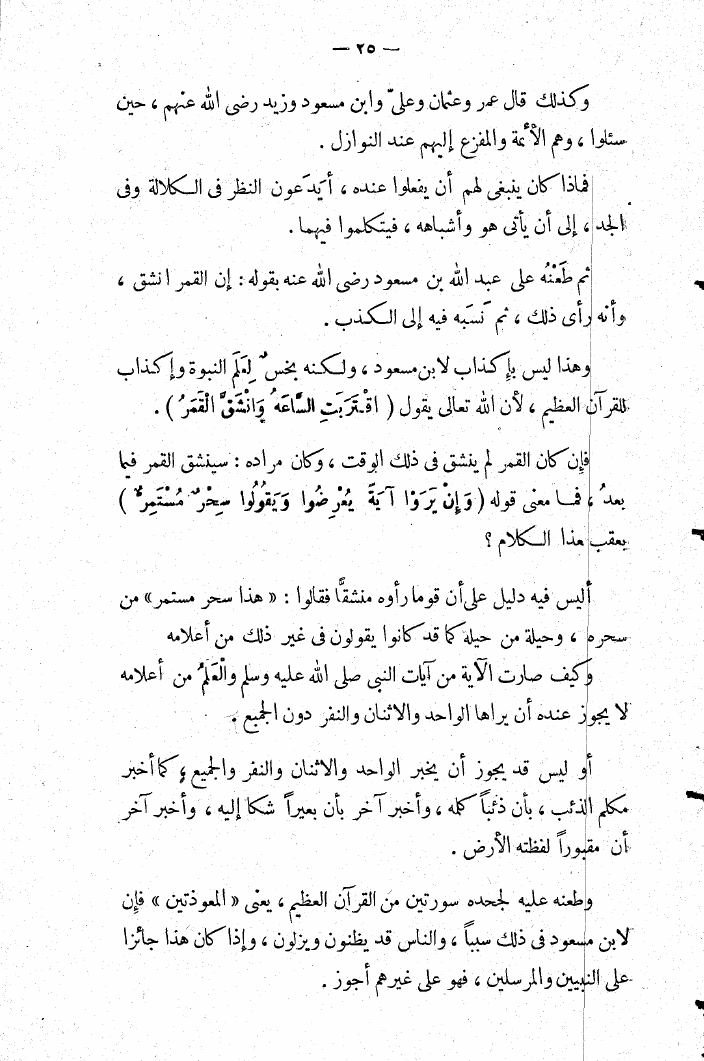 — ٢٥ —
وكذلك قال عمر وعثمان وعلىّ وابن مسعود وزيد رضى الله عنهم ، حين
سئلوا ، وهم الأئمة والمفزع إليهم عند النوازل .
فماذا كان ينبغى لهم أن يفعلوا عنده ، أيَدَعون النظر فى الكلالة وفى
الجد ، إلى أن يأتى هو وأشباهه ، فيتكلموا فيهما .
ثم طَعْنُه على عبد الله بن مسعود رضى الله عنه بقوله : إن القمر انشق ،
وأنه رأى ذلك ، ثم نَسَبه فيه إلى الكذب .
وهذا ليس بإكذاب لابن مسعود ، ولكنه بخسٌ لِعَلَمِ النبوة وإكذاب
للقرآن العظيم ، لأن الله تعالى يقول ( اقْتَرَبَتِ السَّاعَةُ وَانْشَقَّ الْقَمَرُ ) .
فإن كان القمر لم ينشق فى ذلك الوقت ، وكان مراده : سينشق القمر فيما
بعدُ ، فما معنى قوله ( وَإِنْ يَرَوْا آيَةً يُعْرِضُوا وَيَقُولُوا سِحْرٌ مُسْتَمِرٌّ )
بعقب هذا الكلام ؟
أليس فيه دليل على أن قوما رأوه منشقًّا فقالوا : « هذا سحر مستمر » من
سحره ، وحيلة من حيله كما قد كانوا يقولون فى غير ذلك من أعلامه
وكيف صارت الآية من آيات النبى صلى الله عليه وسلم والْعَلَمُ من أعلامه
لا يجوز عنده أن يراها الواحد والاثنان والنفر دون الجميع .
أو ليس قد يجوز أن يخبر الواحد والاثنان والنفر والجميع ، كما أخبر
مكلم الذئب ، بأن ذئباً كلمه ، وأخبر آخر بأن بعيراً شكا إليه ، وأخبر آخر
أن مقبوراً لفظته الأرض .
وطعنه عليه لجحده سورتين من القرآن العظيم ، يعنى « المعوذتين » فإن
لابن مسعود فى ذلك سبباً ، والناس قد يظنون ويزلون ، وإذا كان هذا جائزا
على النبيين والمرسلين ، فهو على غيرهم أجوز .